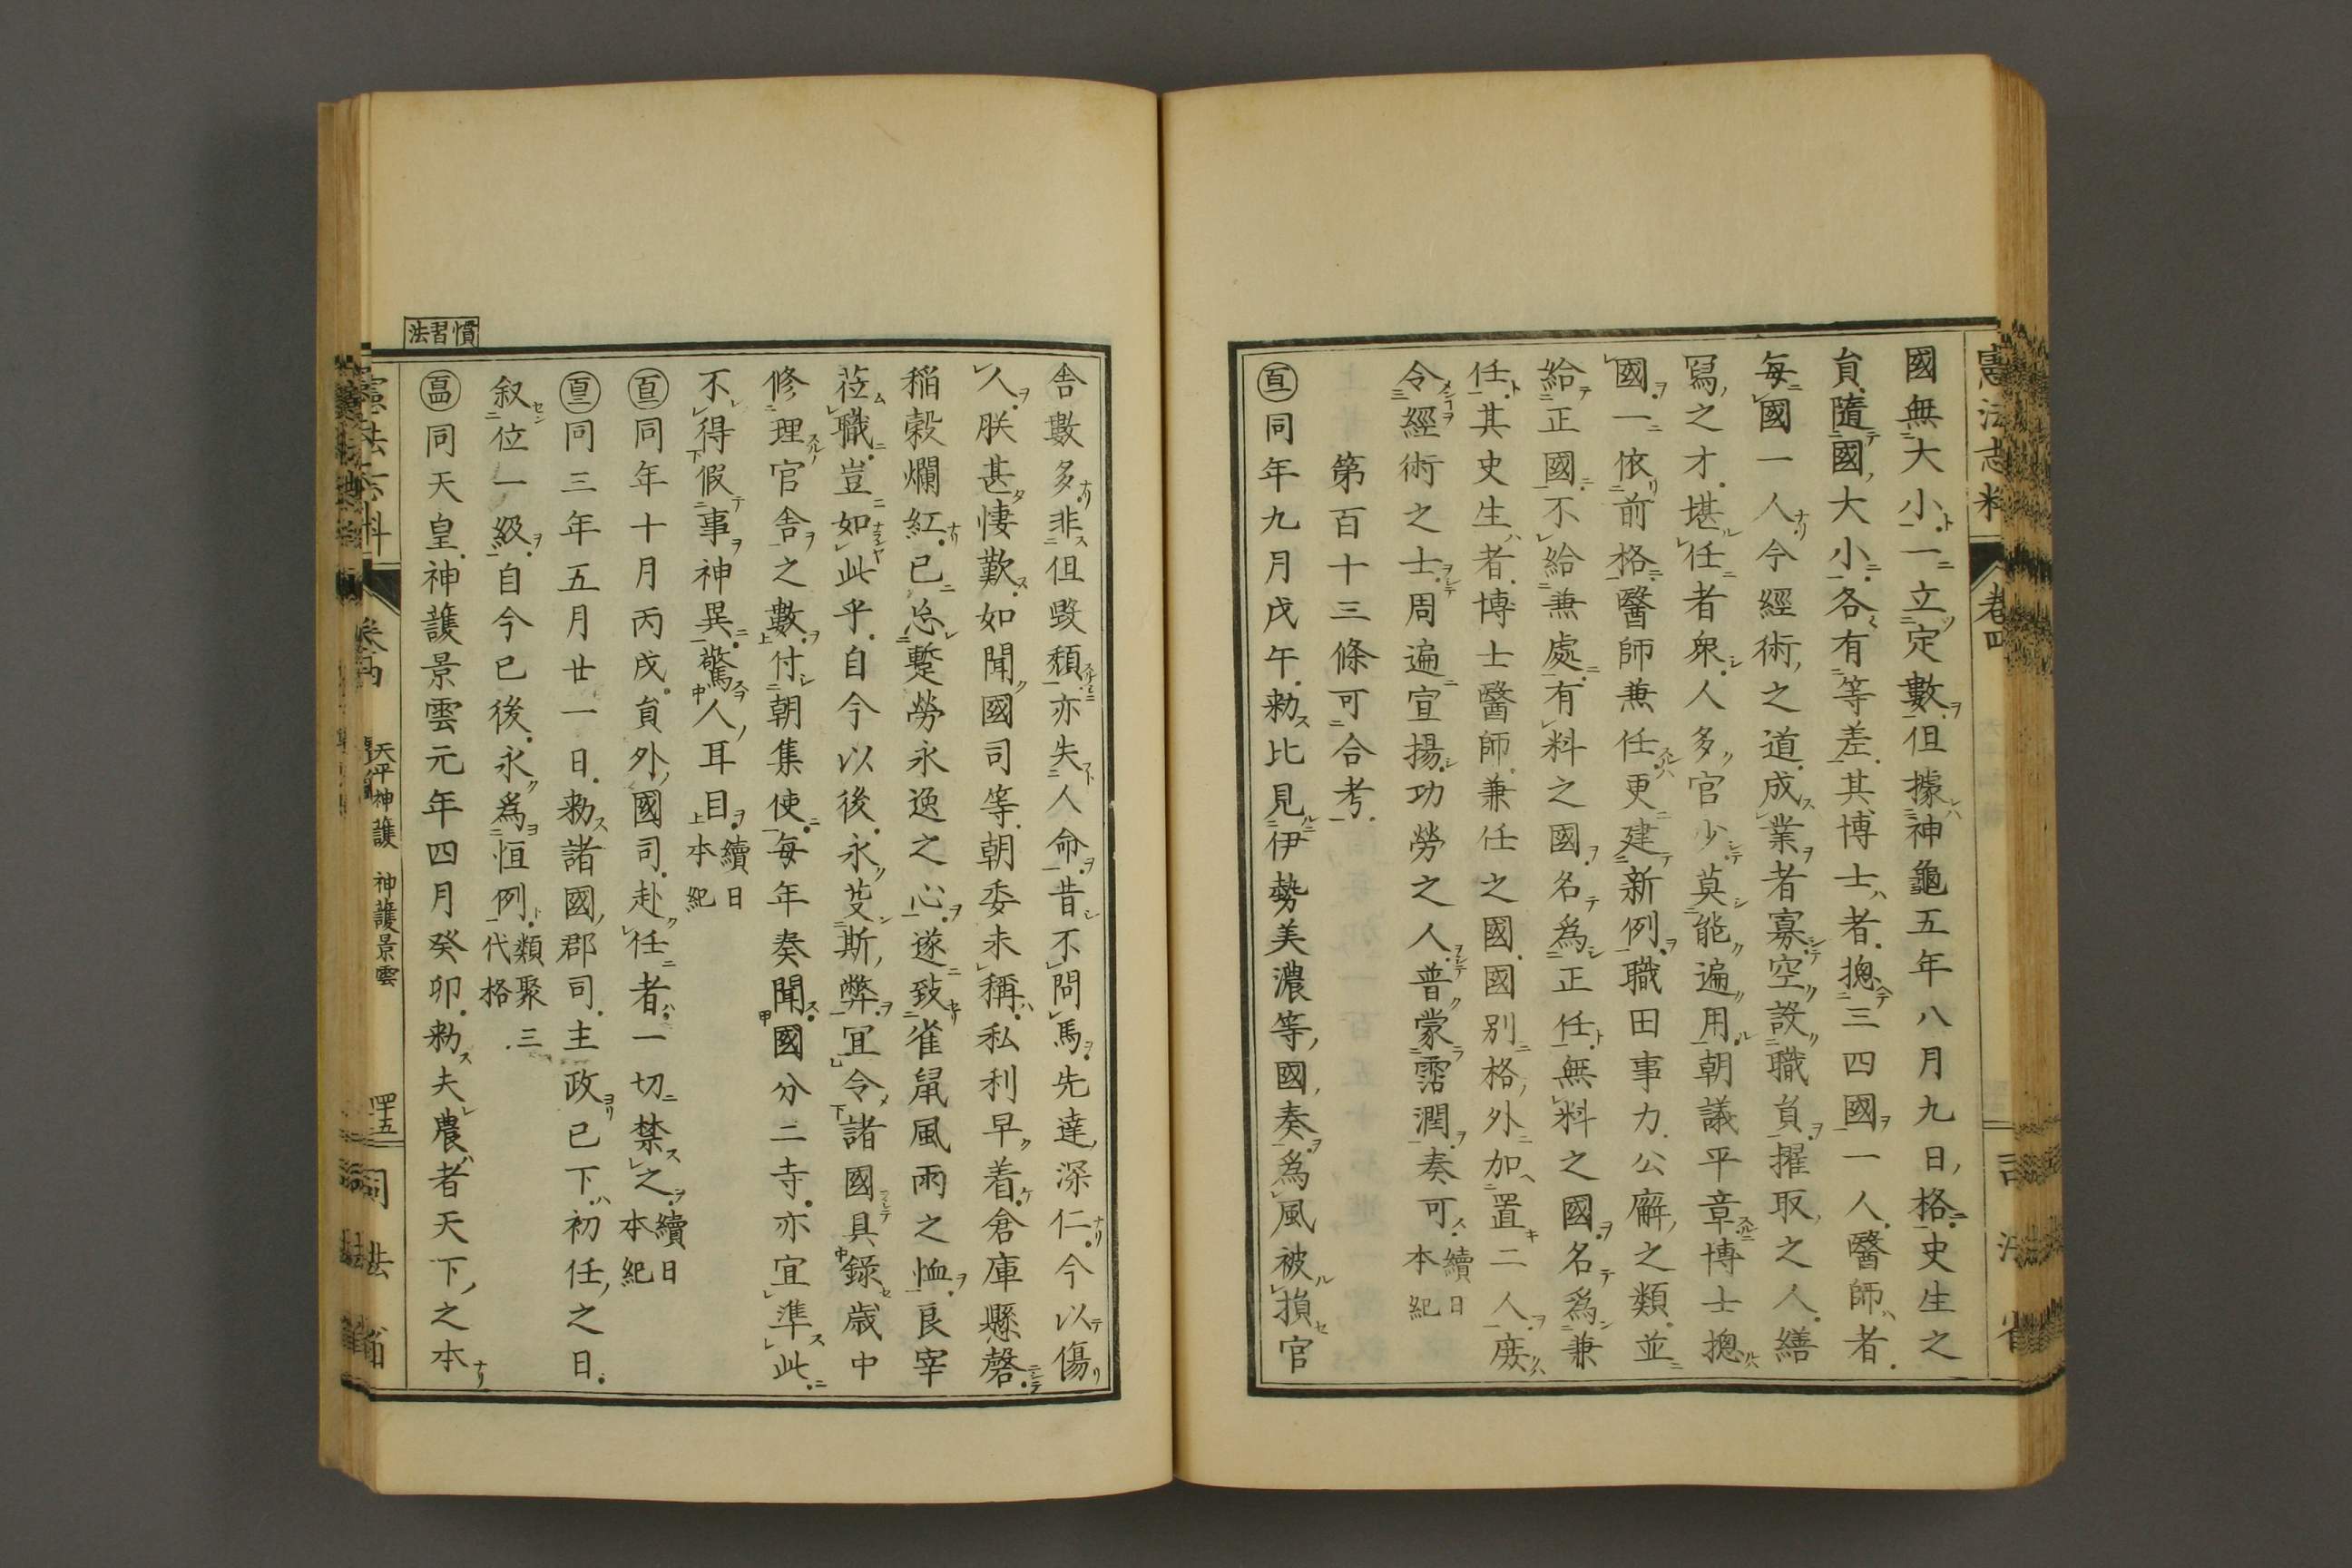 憲法志料
卷四
司法省
國無大小一立定數但據神龜五年八月九日格史生之
員隨國大小各有等差其博士者摠三四國一人醫師者
每國一人今經術之道成業者寡空設職員擢取之人繕
寫之才堪任者衆人多官少莫能遍用朝議平章博士摠
國一依前格醫師兼任更建新例職田事力公廨之類並
給正國不給兼處有料之國名爲正任無料之國名爲兼
任其史生者博士醫師兼任之國國別格外加置二人庶
令經術之士周遍宣揚功勞之人普蒙霑潤奏可續日本紀
第百十三條可合考
同年九月戊午勅比見伊勢美濃等國奏爲風被損官
舍數多非但毀頽亦失人命昔不問馬先達深仁今以傷
人朕甚悽歎如聞國司等朝委未稱私利早着倉庫懸罄
稲穀爛紅已忘蹔勞永逸之心遂致雀鼠風雨之恤良宰
莅職豈如此乎自今以後永芟斯弊宜令諸國具錄歲中
修理官舍之數付朝集使每年奏聞國分二寺亦宜準此
不得假事神異驚人耳目續日本紀
同年十月丙戌員外國司赴任者一切禁之續日本紀
同三年五月廿一日勅諸國郡司主政已下初任之日
叙位一級自今已後永爲恒例類聚三代格
慣習法
同天皇神護景雲元年四月癸卯勅夫農者天下之本
憲法志料
卷四
天平神護
神護景雲
四十五
司法省